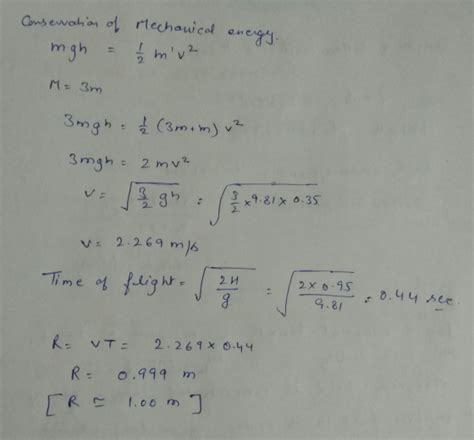 Conservation of Mechanical energy.
mgh = 1/2 m'v²
M = 3m
3mgh = 1/2 (3m+m) v²
3mgh = 2mv²
v = √(3/2 gh) = √(3/2 × 9.81 × 0.35)
v = 2.269 m/s
Time of flight = √(2H/g) = √(2 × 0.95/9.81) = 0.44 sec.
R = VT = 2.269 × 0.44
R = 0.999 m
[R ≃ 1.00 m]